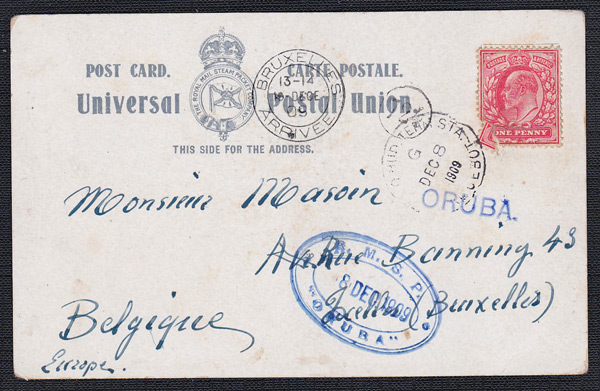 POST CARD. CARTE POSTALE.
Universal Postal Union
THE ROYAL MAIL STEAM PACKET COMPANY
THIS SIDE FOR THE ADDRESS.
BRUXELLES
13-14
DEC
09
ARRIVEE
POSTAGE REVENUE
ONE PENNY
G
DEC 8
1909
ORUBA.
Monsieur Masoin
Avenue Banning 43
Ixelles (Bruxelles)
Belgique
Europe.
R. M. S. P.
8 DEC 1909
"ORUBA"